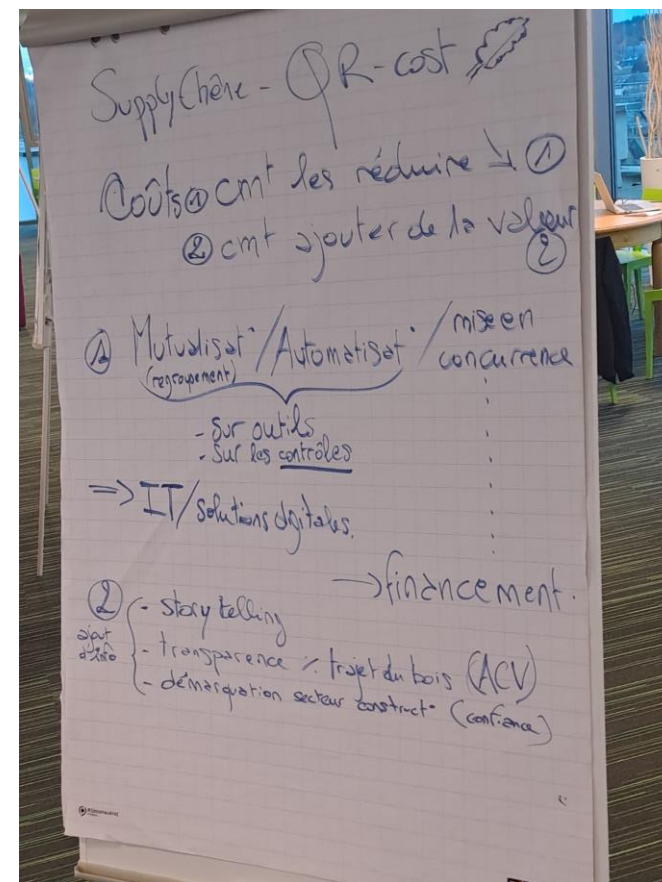 SupplyChêne - QR-cost
Coûts ① cmt les réduire ↘ ①
② cmt ajouter de la valeur
②
① Mutualisat° / Automatisat° / mise en
(regroupement) concurrence
- Sur outils
- Sur les contrôles
=> IT/solutions digitales.
→ financement.
② - storytelling
ajout
d'info
- transparence % trajet du bois (ACV)
- démarquation secteur construct° (confiance)